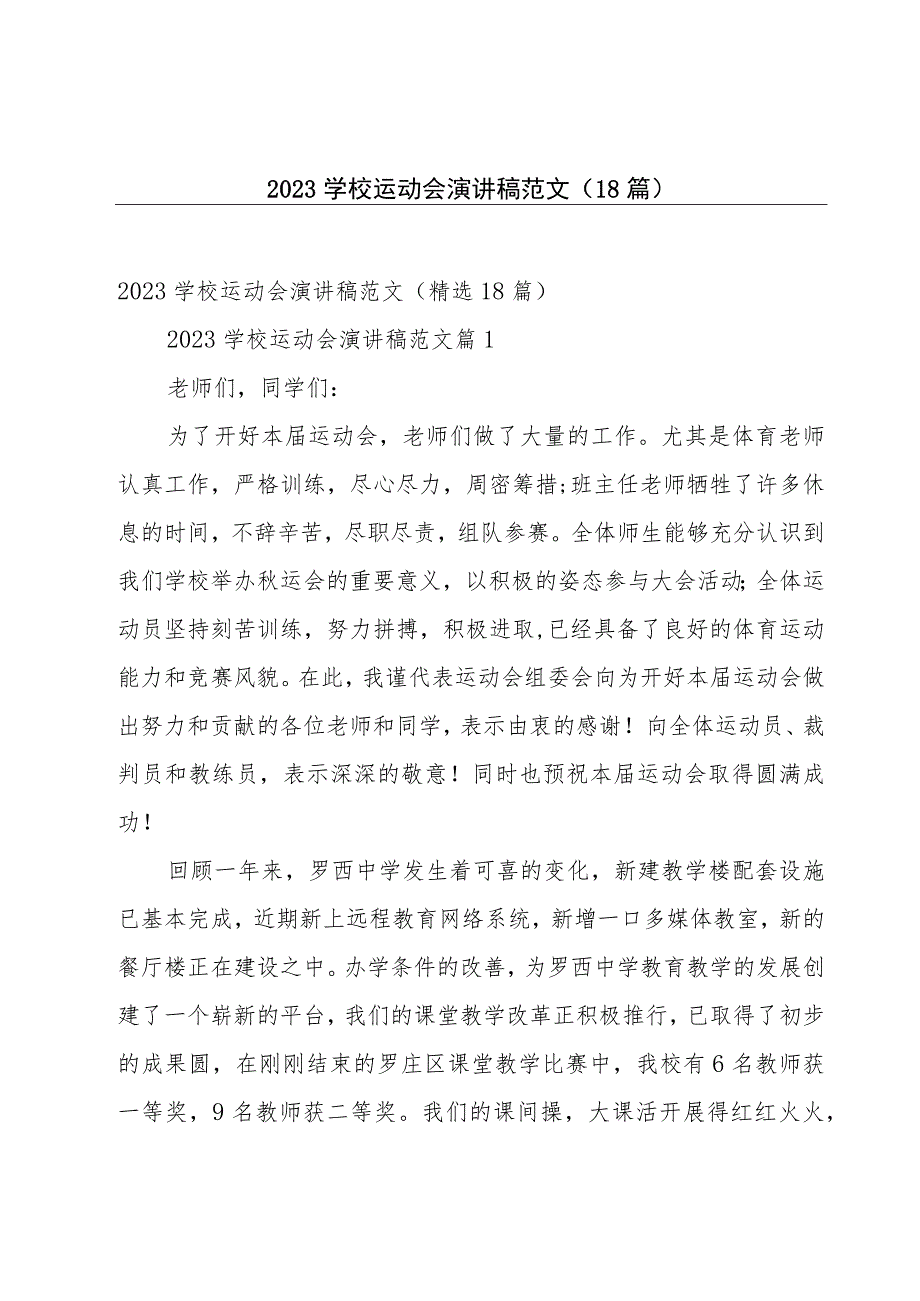 2023 学校运动会演讲稿范文（18 篇）
2023 学校运动会演讲稿范文（精选 18 篇）
2023 学校运动会演讲稿范文篇 1
老师们，同学们：
为了开好本届运动会，老师们做了大量的工作。尤其是体育老师
认真工作，严格训练，尽心尽力，周密筹措;班主任老师牺牲了许多休
息的时间，不辞辛苦，尽职尽责，组队参赛。全体师生能够充分认识到
我们学校举办秋运会的重要意义，以积极的姿态参与大会活动；全体运
动员坚持刻苦训练，努力拼搏，积极进取,已经具备了良好的体育运动
能力和竞赛风貌。在此，我谨代表运动会组委会向为开好本届运动会做
出努力和贡献的各位老师和同学，表示由衷的感谢！向全体运动员、裁
判员和教练员，表示深深的敬意！同时也预祝本届运动会取得圆满成
功！
回顾一年来，罗西中学发生着可喜的变化，新建教学楼配套设施
已基本完成，近期新上远程教育网络系统，新增一口多媒体教室，新的
餐厅楼正在建设之中。办学条件的改善，为罗西中学教育教学的发展创
建了一个崭新的平台，我们的课堂教学改革正积极推行，已取得了初步
的成果圆，在刚刚结束的罗庄区课堂教学比赛中，我校有 6 名教师获
一等奖，9 名教师获二等奖。我们的课间操，大课活开展得红红火火，